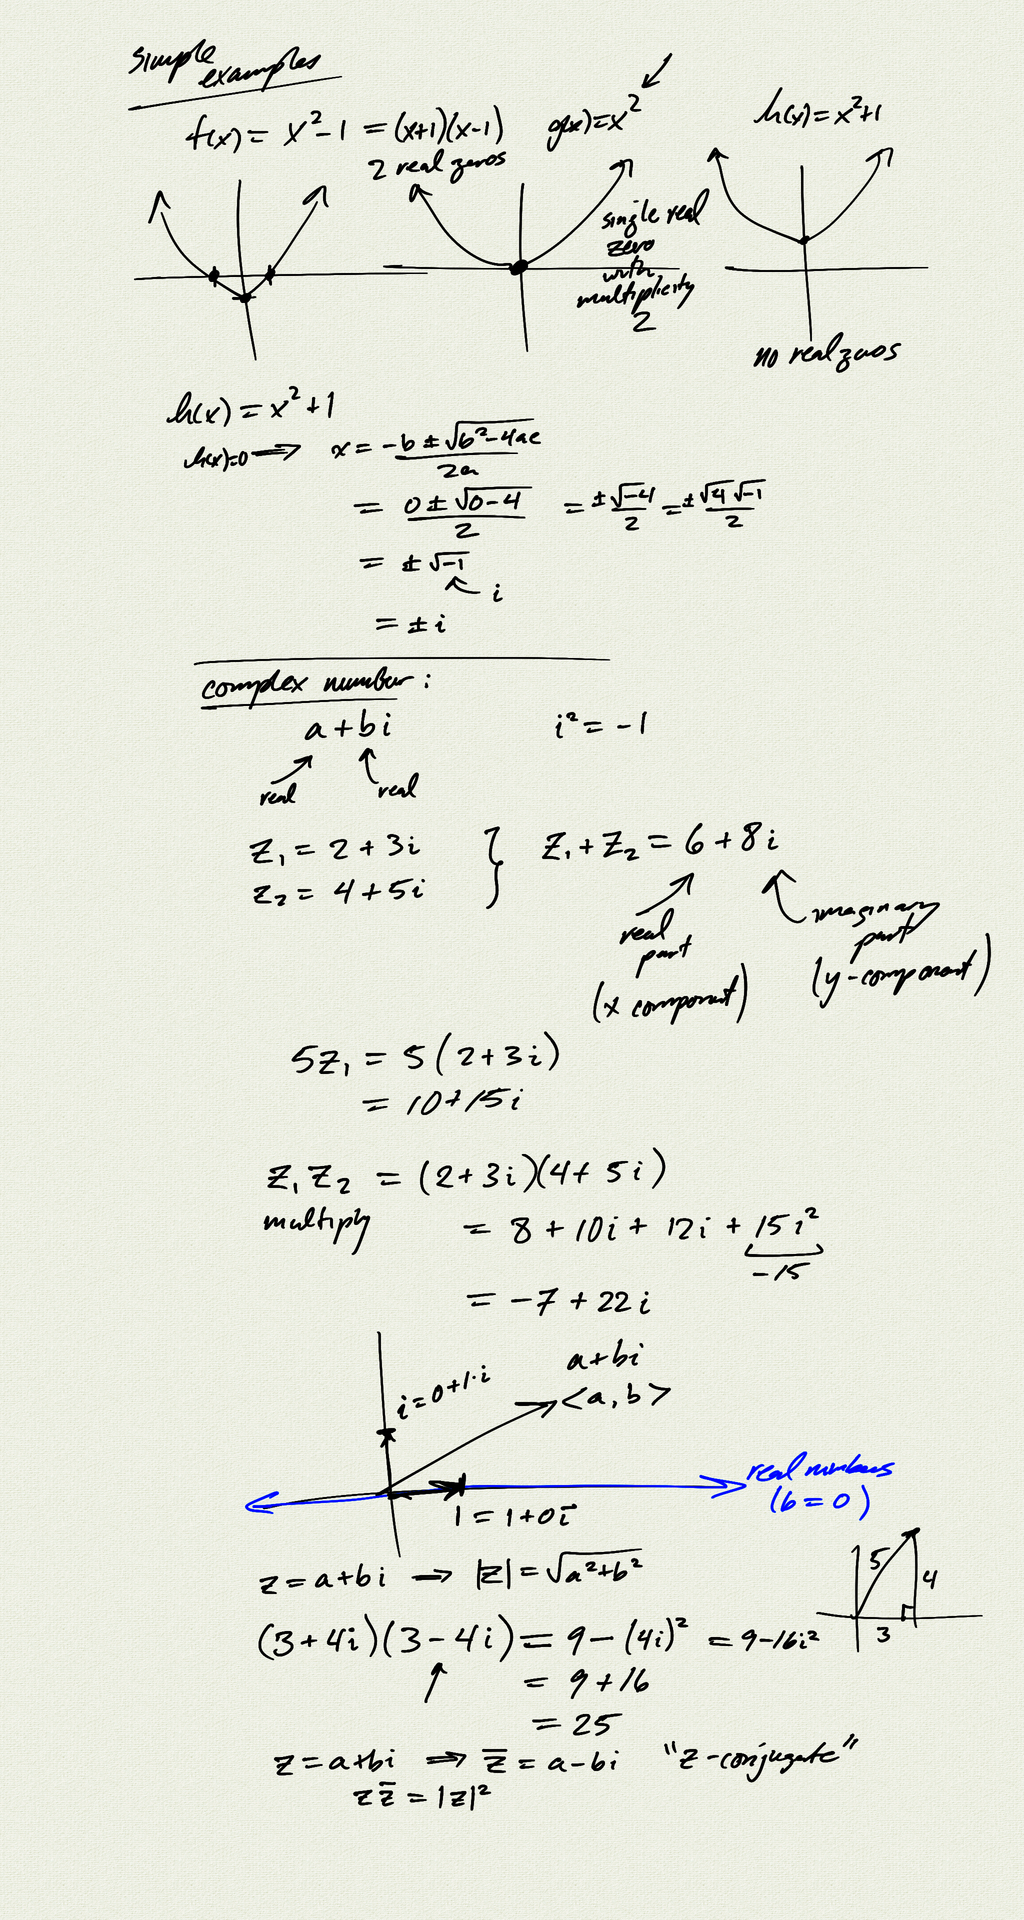 simple
examples
f(x) = x²-1 = (x+1)(x-1)
2 real zeros
g(x)=x²
single real
zero
with
multiplicity
2
h(x)=x²+1
no real zeros
h(x) = x²+1
h(x)=0 ⟹ x = (-b ± √(b²-4ac))/2a
= (0 ± √(0-4))/2 = ±√-4/2 = ±√4 √-1/2
= ± √-1
i
= ± i
complex number:
a + bi
i² = -1
real
real
z₁ = 2 + 3i
z₂ = 4 + 5i
} z₁ + z₂ = 6 + 8i
real
part
(x component)
imaginary
part
(y-component)
5z₁ = 5(2+3i)
= 10+15i
z₁z₂ = (2+3i)(4+5i)
multiply
= 8 + 10i + 12i + 15i²
-15
= -7 + 22i
i = 0+1·i
a+bi
<a, b>
real numbers
(b=0)
1 = 1+0i
z = a+bi ⟹ |z| = √(a²+b²)
5
4
3
(3+4i)(3-4i) = 9-(4i)² = 9-16i²
= 9+16
= 25
z = a+bi ⟹ z̅ = a-bi "z-conjugate"
zz̅ = |z|²